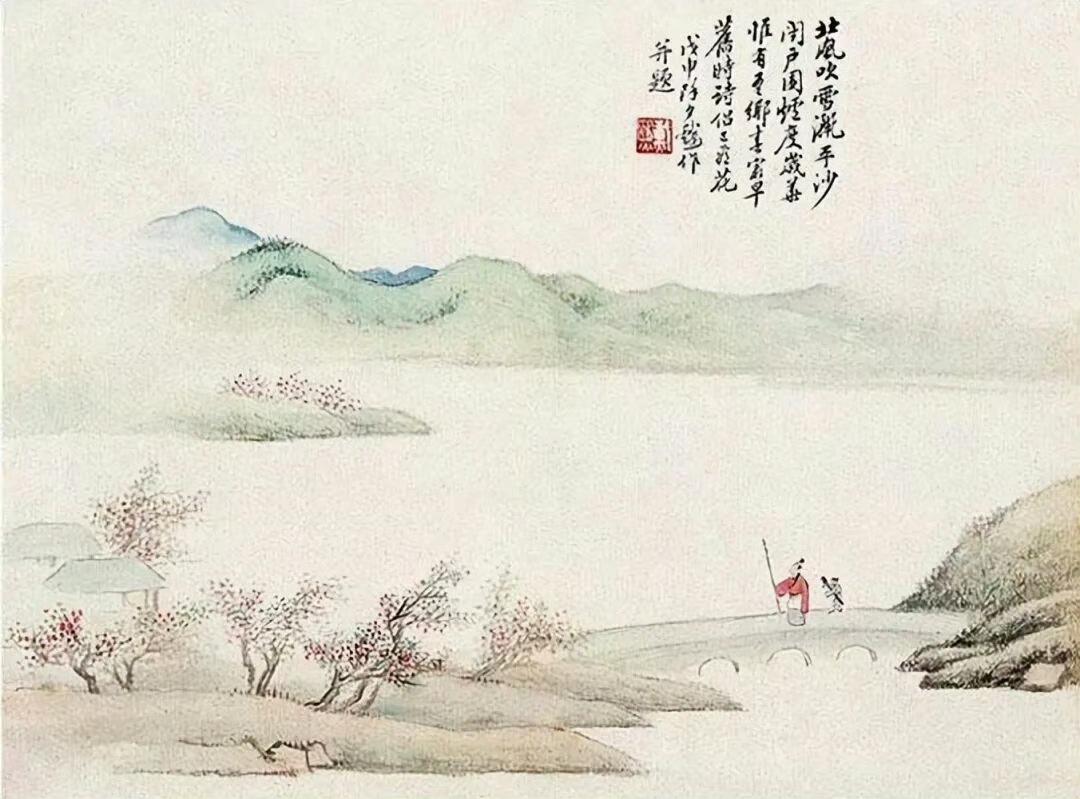 北風吹雪灑平沙
閉戶圍爐度歲華
惟有吾鄉春最早
舊時詩侶花
戊申除夕戲作
并題